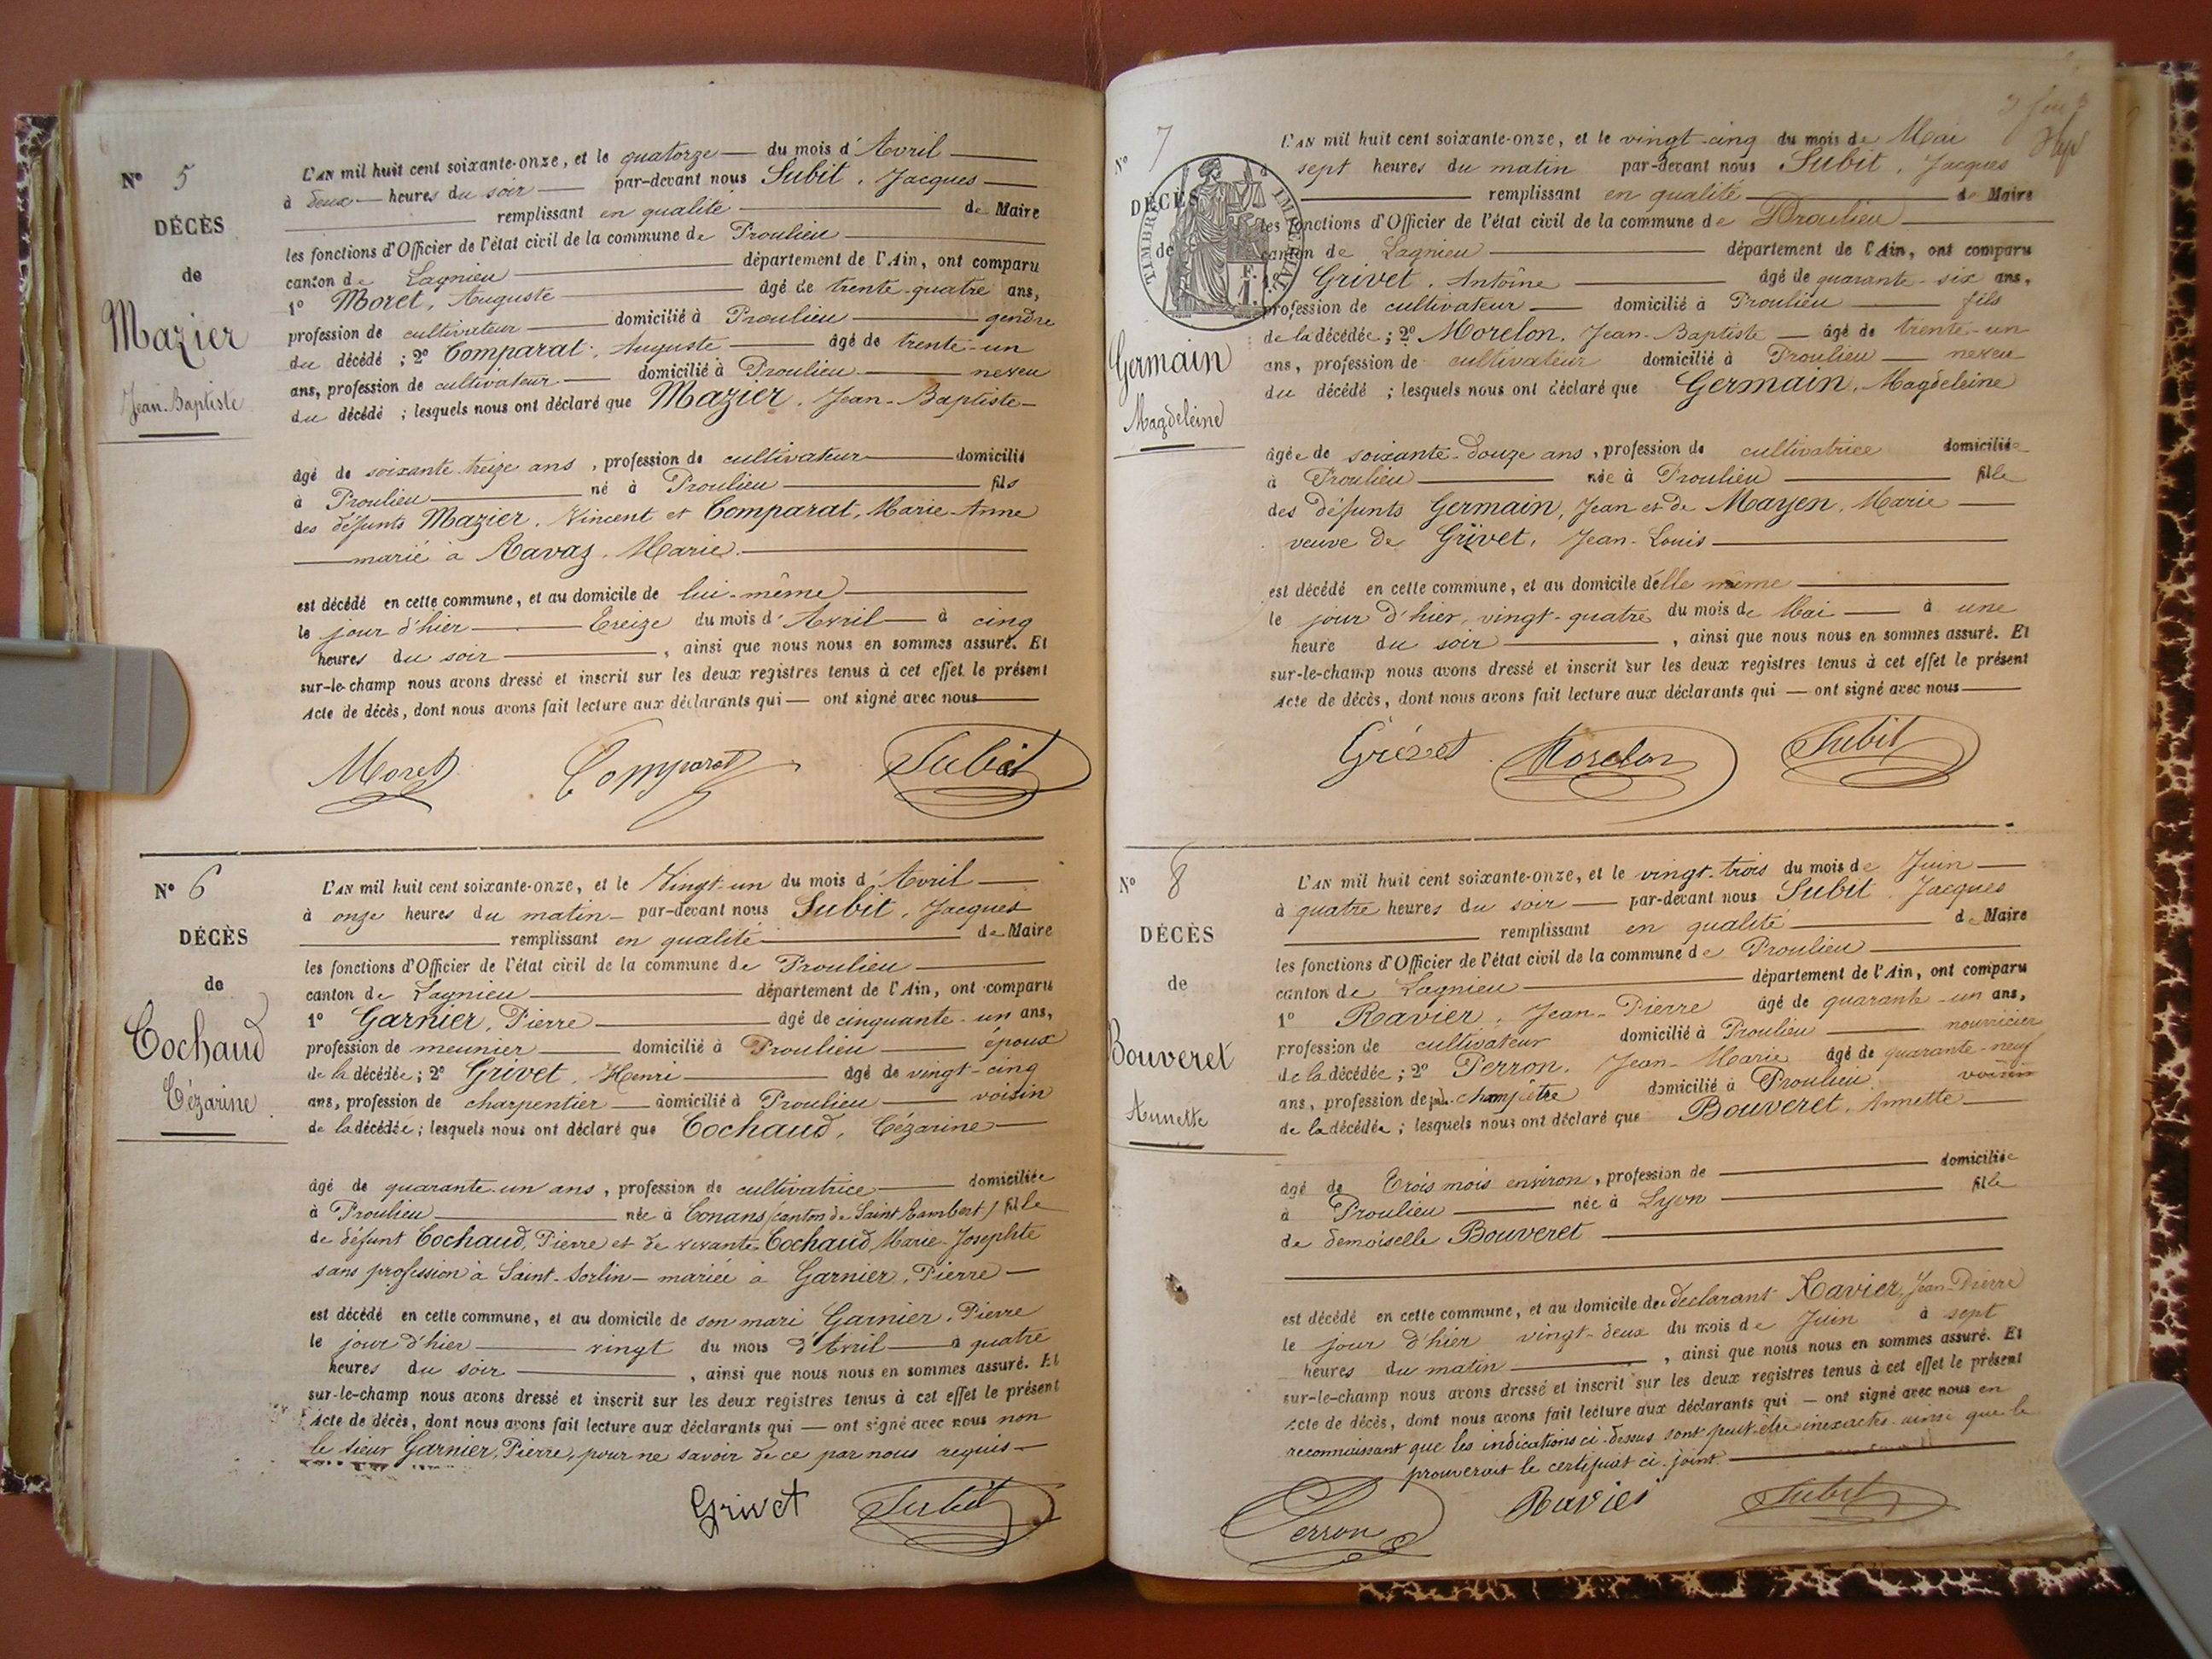 N° 5
DÉCÈS
de
Mazier
Jean-Baptiste
L'AN mil huit cent soixante-onze, et le quatorze du mois d'Avril
à deux heures du soir par-devant nous Subit, Jacques
remplissant en qualité de Maire
les fonctions d'Officier de l'état civil de la commune de Proulieu
canton de Lagnieu département de l'Ain, ont comparu
1° Moret, Auguste âgé de trente-quatre ans,
profession de cultivateur domicilié à Proulieu gendre
du décédé ; 2° Comparat, Auguste âgé de trente-un
ans, profession de cultivateur domicilié à Proulieu neveu
du décédé ; lesquels nous ont déclaré que Mazier, Jean-Baptiste
âgé de soixante treize ans, profession de cultivateur domicilié
à Proulieu né à Proulieu fils
des défunts Mazier, Vincent et Comparat, Marie-Anne
marié à Ravaz, Marie.
est décédé en cette commune, et au domicile de lui-même
le jour d'hier Treize du mois d'Avril à cinq
heures du soir, ainsi que nous nous en sommes assuré. Et
sur-le-champ nous avons dressé et inscrit sur les deux registres tenus à cet effet le présent
Acte de décès, dont nous avons fait lecture aux déclarants qui ont signé avec nous
Moret Comparat Subit
N° 6
DÉCÈS
de
Cochaud
Cézarine
L'AN mil huit cent soixante-onze, et le Vingt-un du mois d'Avril
à onze heures du matin par-devant nous Subit, Jacques
remplissant en qualité de Maire
les fonctions d'Officier de l'état civil de la commune de Proulieu
canton de Lagnieu département de l'Ain, ont comparu
1° Garnier, Pierre âgé de cinquante-un ans,
profession de meunier domicilié à Proulieu époux
de la décédée ; 2° Grivet, Henri âgé de vingt-cinq
ans, profession de charpentier domicilié à Proulieu voisin
de la décédée ; lesquels nous ont déclaré que Cochaud, Cézarine
âgé de quarante-un ans, profession de cultivatrice domiciliée
à Proulieu née à Conans (canton de Saint Rambert) fille
de défunt Cochaud, Pierre et de vivante Cochaud, Marie-Josephte
sans profession à Saint-Sorlin mariée à Garnier, Pierre
est décédé en cette commune, et au domicile de son mari Garnier, Pierre
le jour d'hier vingt du mois d'Avril à quatre
heures du soir, ainsi que nous nous en sommes assuré. Et
sur-le-champ nous avons dressé et inscrit sur les deux registres tenus à cet effet le présent
Acte de décès, dont nous avons fait lecture aux déclarants qui ont signé avec nous non
le sieur Garnier, Pierre, pour ne savoir de ce par nous requis
Grivet Subit
N° 7
DÉCÈS
de
TIMBRE IMPÉRIAL
Germain
Magdeleine
L'AN mil huit cent soixante-onze, et le vingt-cinq du mois de Mai
à sept heures du matin par-devant nous Subit, Jacques
remplissant en qualité de Maire
les fonctions d'Officier de l'état civil de la commune de Proulieu
canton de Lagnieu département de l'Ain, ont comparu
1° Grivet, Antoine âgé de quarante-six ans,
profession de cultivateur domicilié à Proulieu fils
de la décédée ; 2° Morelon, Jean-Baptiste âgé de trente-un
ans, profession de cultivateur domicilié à Proulieu neveu
du décédé ; lesquels nous ont déclaré que Germain, Magdeleine
âgée de soixante-douze ans, profession de cultivatrice domiciliée
à Proulieu née à Proulieu fille
des défunts Germain, Jean et de Mayen, Marie
veuve de Grivet, Jean-Louis
est décédé en cette commune, et au domicile d'elle même
le jour d'hier, vingt-quatre du mois de Mai à une
heure du soir, ainsi que nous nous en sommes assuré. Et
sur-le-champ nous avons dressé et inscrit sur les deux registres tenus à cet effet le présent
Acte de décès, dont nous avons fait lecture aux déclarants qui ont signé avec nous
Grivet Morelon Subit
N° 8
DÉCÈS
de
Bouveret
Annette
L'AN mil huit cent soixante-onze, et le vingt-trois du mois de Juin
à quatre heures du soir par-devant nous Subit, Jacques
remplissant en qualité de Maire
les fonctions d'Officier de l'état civil de la commune de Proulieu
canton de Lagnieu département de l'Ain, ont comparu
1° Ravier, Jean-Pierre âgé de quarante-un ans,
profession de cultivateur domicilié à Proulieu nourricier
de la décédée ; 2° Perron, Jean-Marie âgé de quarante-neuf
ans, profession de champêtre domicilié à Proulieu voisin
de la décédée ; lesquels nous ont déclaré que Bouveret, Annette
âgé de Trois mois environ, profession de domiciliée
à Proulieu née à Lyon fille
de demoiselle Bouveret
est décédé en cette commune, et au domicile du déclarant Ravier, Jean-Pierre
le jour d'hier vingt-deux du mois de Juin à sept
heures du matin, ainsi que nous nous en sommes assuré. Et
sur-le-champ nous avons dressé et inscrit sur les deux registres tenus à cet effet le présent
Acte de décès, dont nous avons fait lecture aux déclarants qui ont signé avec nous en
reconnaissant que les indications ci-dessus sont peut-être inexactes ainsi que le
prouverait le certificat ci-joint
Perron Ravier Subit